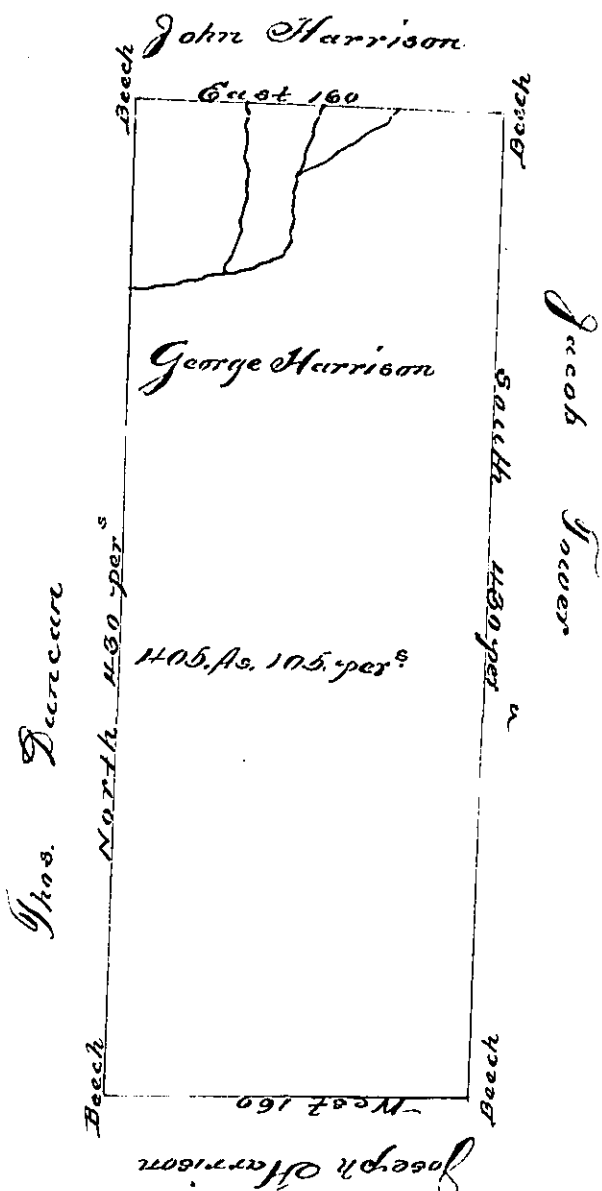 John Harrison
Beech
East 160
Beech
George Harrison
Jacob Tower
South 430 per s
Thos. Duncan
North 430 per s
405. As. 105. per s
Beech
West 160
Beech
Joseph Harrison